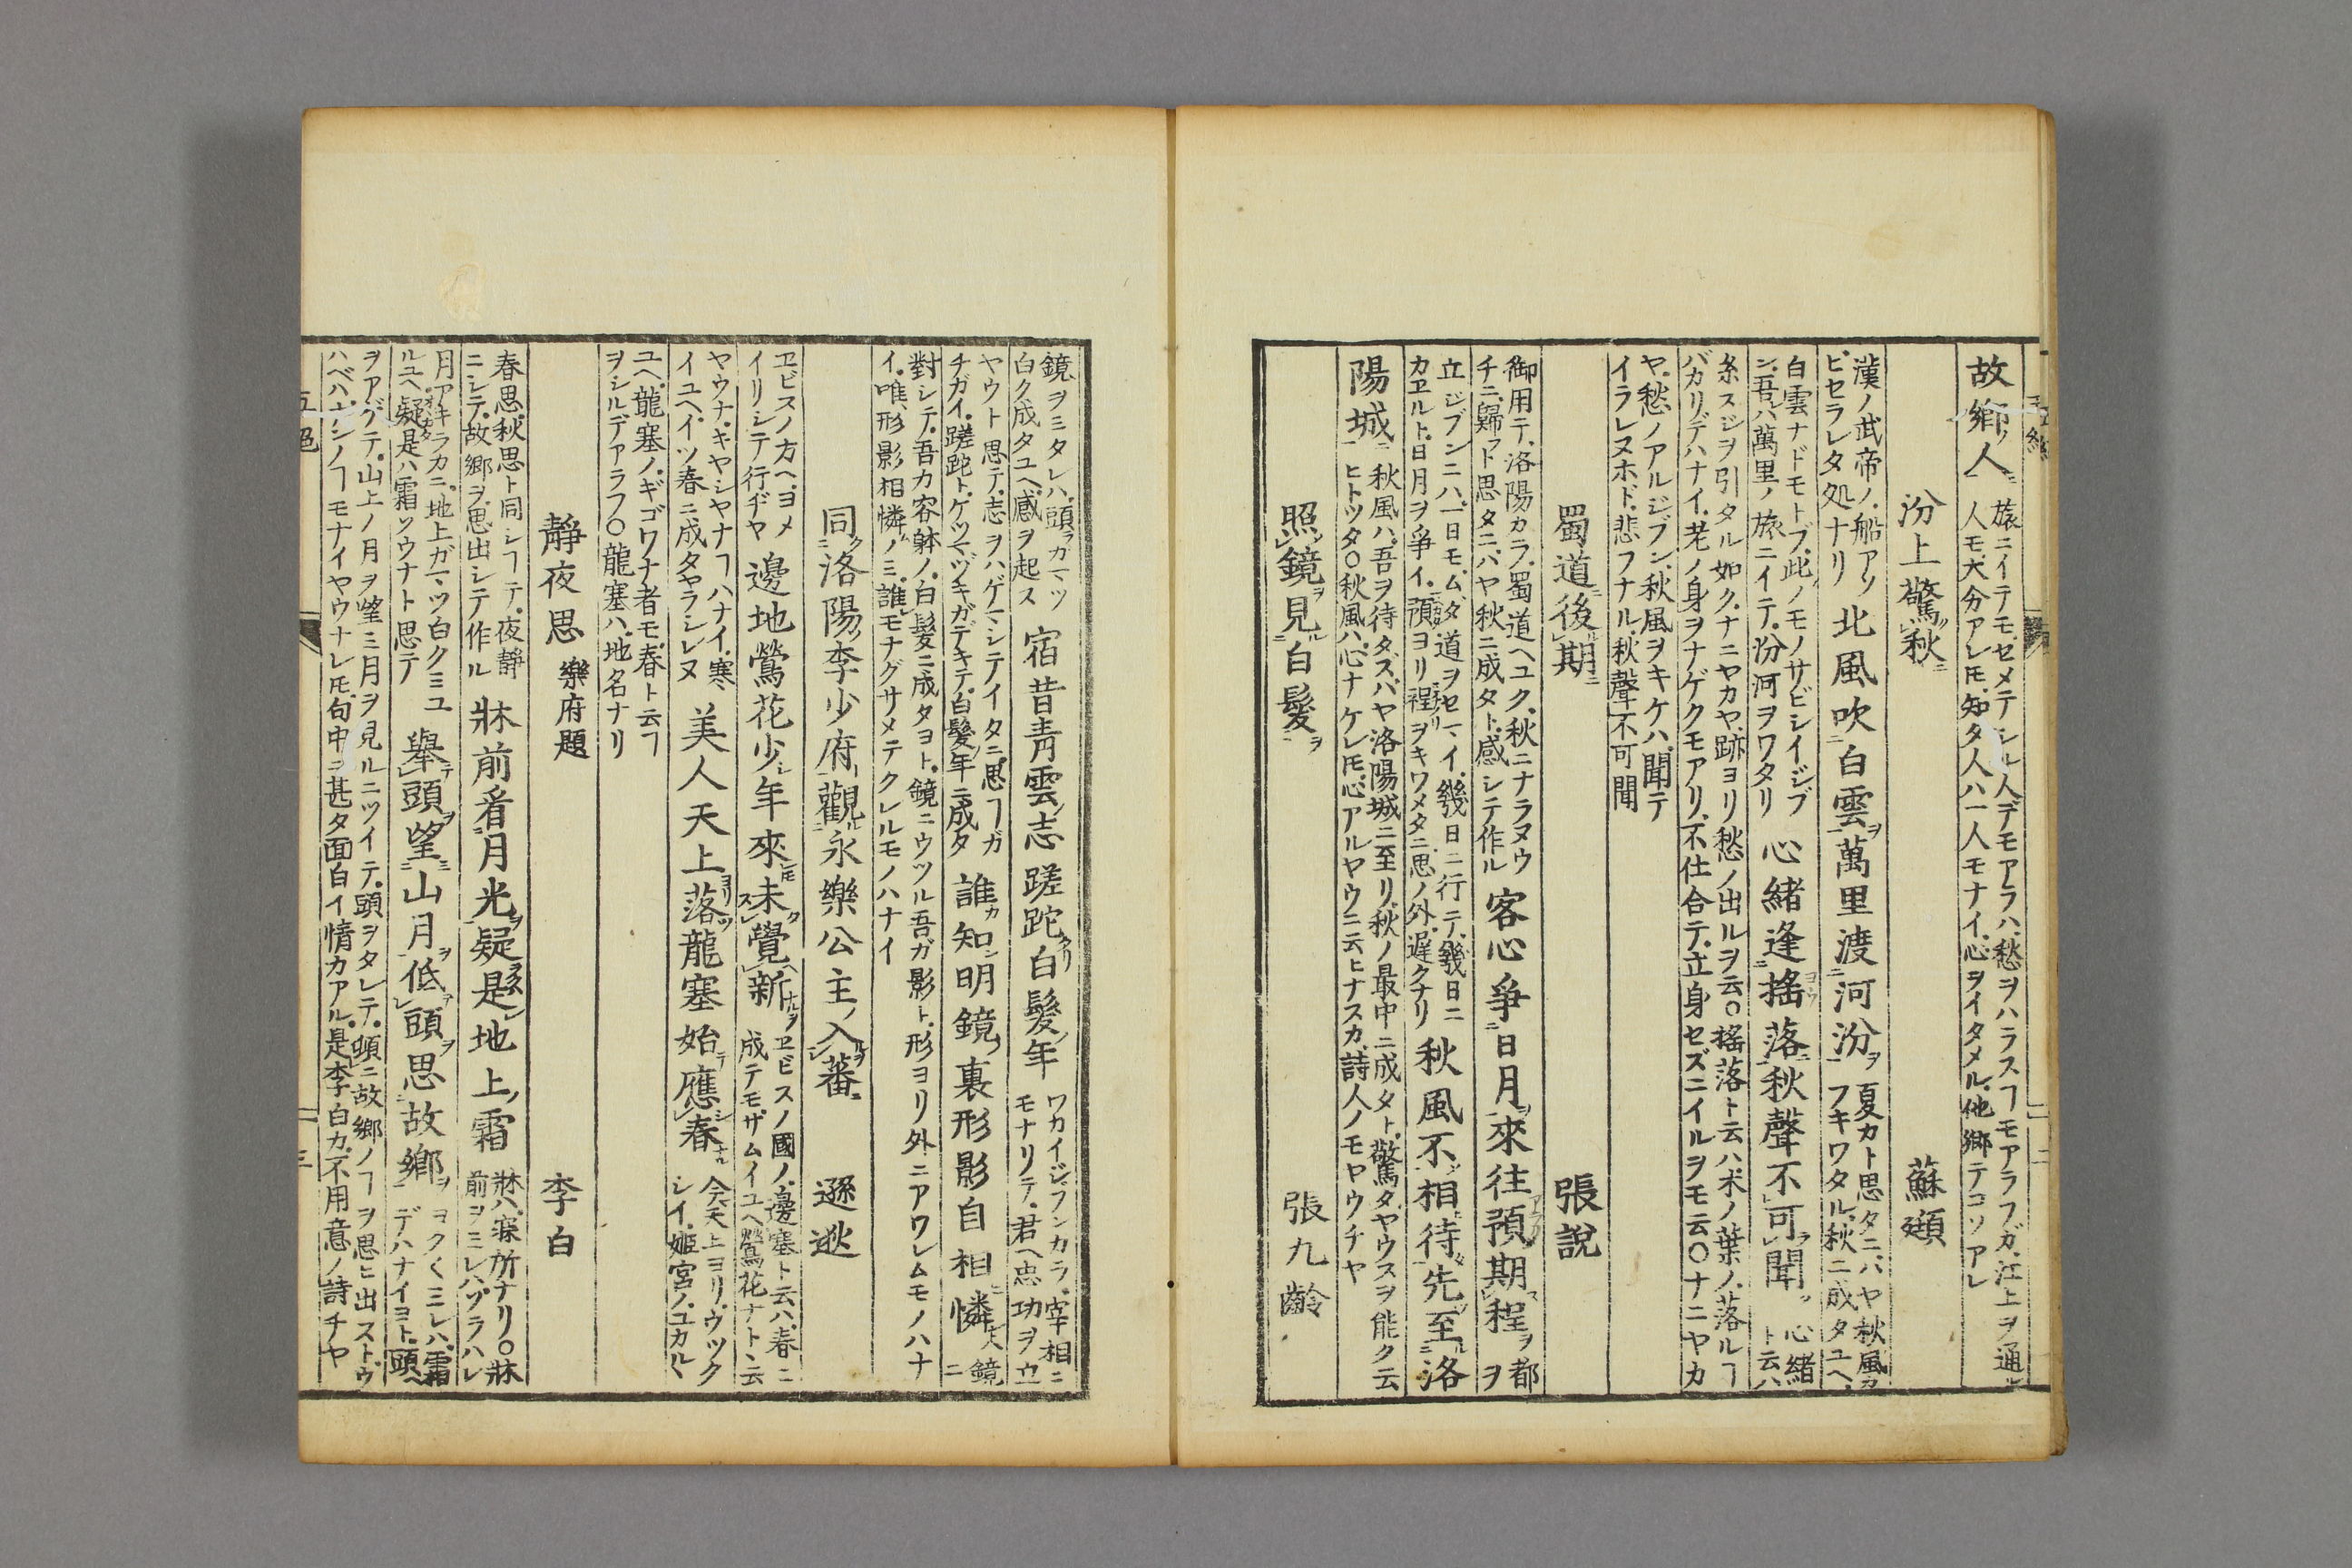 故鄉ノ人 旅ニイテモ、セメテシル人デモアラハ、愁ヲハラスヿモアラフガ、江上ヲ通ル
人モ大分アレ𪜈、知タ人ハ一人モナイ、心ヲイタメル、他鄉テコソアレ
汾上驚秋 蘇頲
漢ノ武帝ノ、船アソ
ビセラレタ処ナリ 北風吹白雲萬里渡河汾 夏カト思タニ、ハヤ秋風ガ
フキワタル、秋ニ成タユヘ、
白雲ナドモトブ、此ノモノサビシイジブ
ン、吾ハ萬里ノ旅ニイテ、汾河ヲワタリ 心緒逢搖落秋聲不可聞 心緒
ト云ハ
糸スジヲ引タル如ク、ナニヤカヤ、跡ヨリ愁ノ出ルヲ云〇搖落ト云ハ木ノ葉ノ、落ルヿ
バカリデハナイ、老ノ身ヲナゲクモアリ、不仕合テ、立身セズニイルヲモ云〇ナニヤカ
ヤ、愁ノアルジブン、秋風ヲキケハ、聞テ
イラレヌホド、悲フナル、秋聲不可聞
蜀道後期 張說
御用テ、洛陽カラ、蜀道ヘユク、秋ニナラヌウ
チニ、歸フト思タニ、ハヤ秋ニ成タト、感シテ作ル 客心爭日月來往預期程 都
ヲ
立ジブンニハ、一日モ、ムダ道ヲセマイ、幾日ニ行テ、幾日ニ
カヱルト、日月ヲ爭イ、預ヨリ程ヲキワメタニ思ノ外、遲クナリ 秋風不相待先至洛
陽城 秋風ハ、吾ヲ待タズ、ハヤ洛陽城ニ至リ、秋ノ最中ニ成タト、驚タヤウスヲ能ク云
ヒトツタ〇秋風ハ、心ナケレ𪜈、心アルヤウニ云ヒナスカ、詩人ノモヤウチヤ
照鏡見白髪 張九齡
鏡ヲミタレハ、頭ガマツ
白ク成タユヘ、感ヲ起ス 宿昔靑雲志蹉跎白髪年 ワカイジフンカラ、宰相ニ
モナリテ、君ヘ忠功ヲ立
ヤウト思テ、志ヲハゲマシテイタニ、思ヿガ
チガイ、蹉跎ト、ケツマヅキガデキテ、白髪年ニ成タ 誰知明鏡裏形影自相憐 鏡
ニ
對シテ、吾カ容躰ノ、白髪ニ成タヨト、鏡ニウツル吾ガ影ト、形ヨリ外ニアワレムモノハナ
イ、唯形影相憐ノミ、誰モナグサメテクレルモノハナイ
同洛陽李少府觀永樂公主入蕃 遜逖
ヱビスノ方ヘ、ヨメ
イリシテ行ヂヤ 邊地鶯花少年來未覺新 ヱビスノ國ノ、邊塞ト云ハ、春ニ
成テモ、サムイユヘ、鶯花ナト、云
ヤウナ、キヤシヤナヿハナイ、寒
イユヘ、イツ春ニ成タヤラシレヌ 美人天上落龍塞始應春 今天上ヨリ、ウツク
シイ、姫宮ノ、ユカルヽ
ユヘ、龍塞ノ、ギゴワナ者モ、春ト云ヿ
ヲシルデアラフ〇龍塞ハ、地名ナリ
靜夜思 樂府題 李白
春思、秋思ト同シヿテ、夜靜
ニシテ、故鄉ヲ、思出シテ作ル 牀前看月光疑是地上霜 牀ハ、寐所ナリ〇牀
前ヲミレハ、ヅラハレ
月アキラカニ、地上ガマツ白クミユ
ルユヘ、疑是ハ霜ソウナト思テ 舉頭望山月低頭思故鄉 ヨクくミレハ、霜
デハナイヨト、頭
ヲアゲテ、山上ノ月ヲ望ミ月ヲ見ルニツイテ、頭ヲタレテ、頓ニ故鄉ノヿヲ思ヒ出スト、ウ
ハベハ、ナシノヿモナイヤウナレ𪜈、句中ニ甚タ面白イ情カアル、是李白カ、不用意ノ詩チヤ